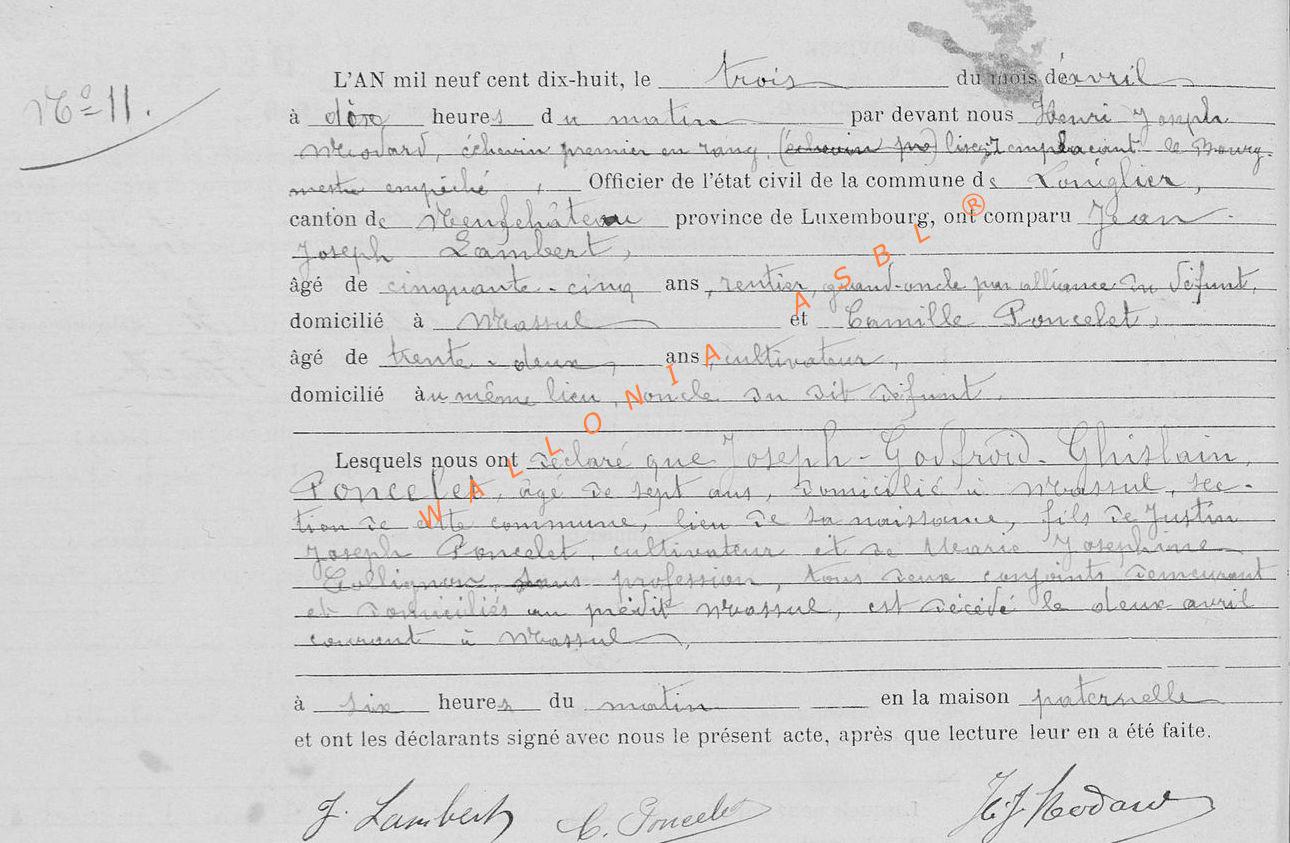 N° 11.
L'AN mil neuf cent dix-huit, le trois du mois de avril
à dix heures du matin par devant nous Henri Joseph
Modard, échevin premier en rang, (échevin pro) lisez remplaçant le Bourg-
mestre empêché, Officier de l'état civil de la commune de Longlier,
canton de Neufchâteau province de Luxembourg, ont comparu Jean
Joseph Lambert,
âgé de cinquante-cinq ans, rentier, grand-oncle par alliance du défunt,
domicilié à Massul et Camille Poncelet,
âgé de trente-deux ans, cultivateur,
domicilié au même lieu, oncle du dit défunt.
Lesquels nous ont déclaré que Joseph-Godfroid-Ghislain
Poncelet, âgé de sept ans, domicilié à Massul, sec-
tion de cette commune, lieu de sa naissance, fils de Justin
Joseph Poncelet, cultivateur et de Marie Josephine
Collignon, sans profession, tous deux conjoints demeurant
et domiciliés au prédit Massul, est décédé le deux avril
courant à Massul,
à six heures du matin en la maison paternelle
et ont les déclarants signé avec nous le présent acte, après que lecture leur en a été faite.
J. Lambert C. Poncelet H. J. Modard
WALLONIA ASBL ®